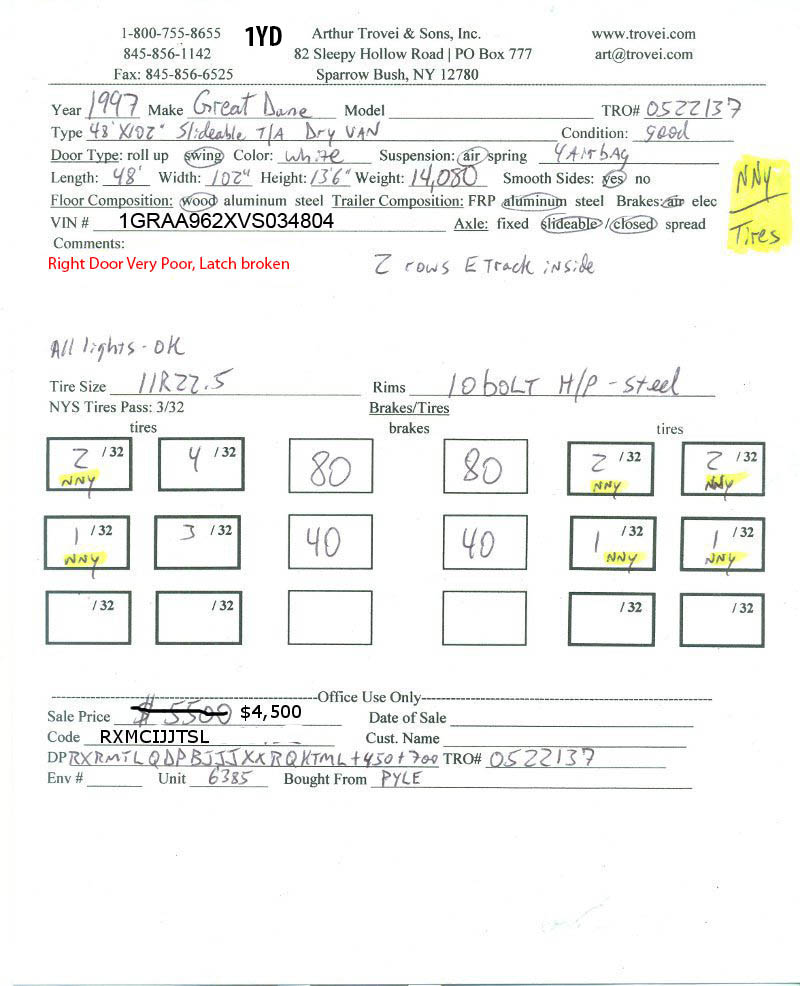 1-800-755-8655 1YD Arthur Trovei & Sons, Inc. www.trovei.com
845-856-1142 82 Sleepy Hollow Road | PO Box 777 art@trovei.com
Fax: 845-856-6525 Sparrow Bush, NY 12780
Year 1997 Make Great Dane Model TRO# 0522137
Type 48'X102" Slideable T/A Dry VAN Condition: good
Door Type: roll up swing Color: white Suspension: air spring 4 Airbag
Length: 48' Width: 102" Height: 13'6" Weight: 14,080 Smooth Sides: yes no
Floor Composition: wood aluminum steel Trailer Composition: FRP aluminum steel Brakes: air elec
VIN # 1GRAA962XVS034804 Axle: fixed slideable / closed spread
NNY
Tires
Comments:
Right Door Very Poor, Latch broken 2 rows E Track inside
All lights - OK
Tire Size 11R22.5 Rims 10 boLT H/P - steel
NYS Tires Pass: 3/32 Brakes/Tires
tires brakes tires
2 /32 4 /32 80 80 2 /32 2 /32
NNY NNY NNY
1 /32 3 /32 40 40 1 /32 1 /32
NNY NNY NNY
/32 /32 /32 /32
Office Use Only
Sale Price $5500 $4,500 Date of Sale
Code RXMCIJJTSL Cust. Name
DP RXRMTLQDPBJJJXXRQKTML+450+700 TRO# 0522137
Env # Unit 6385 Bought From PYLE